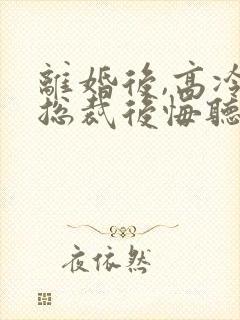 離婚後,高冷
總裁後悔聽
夜依然